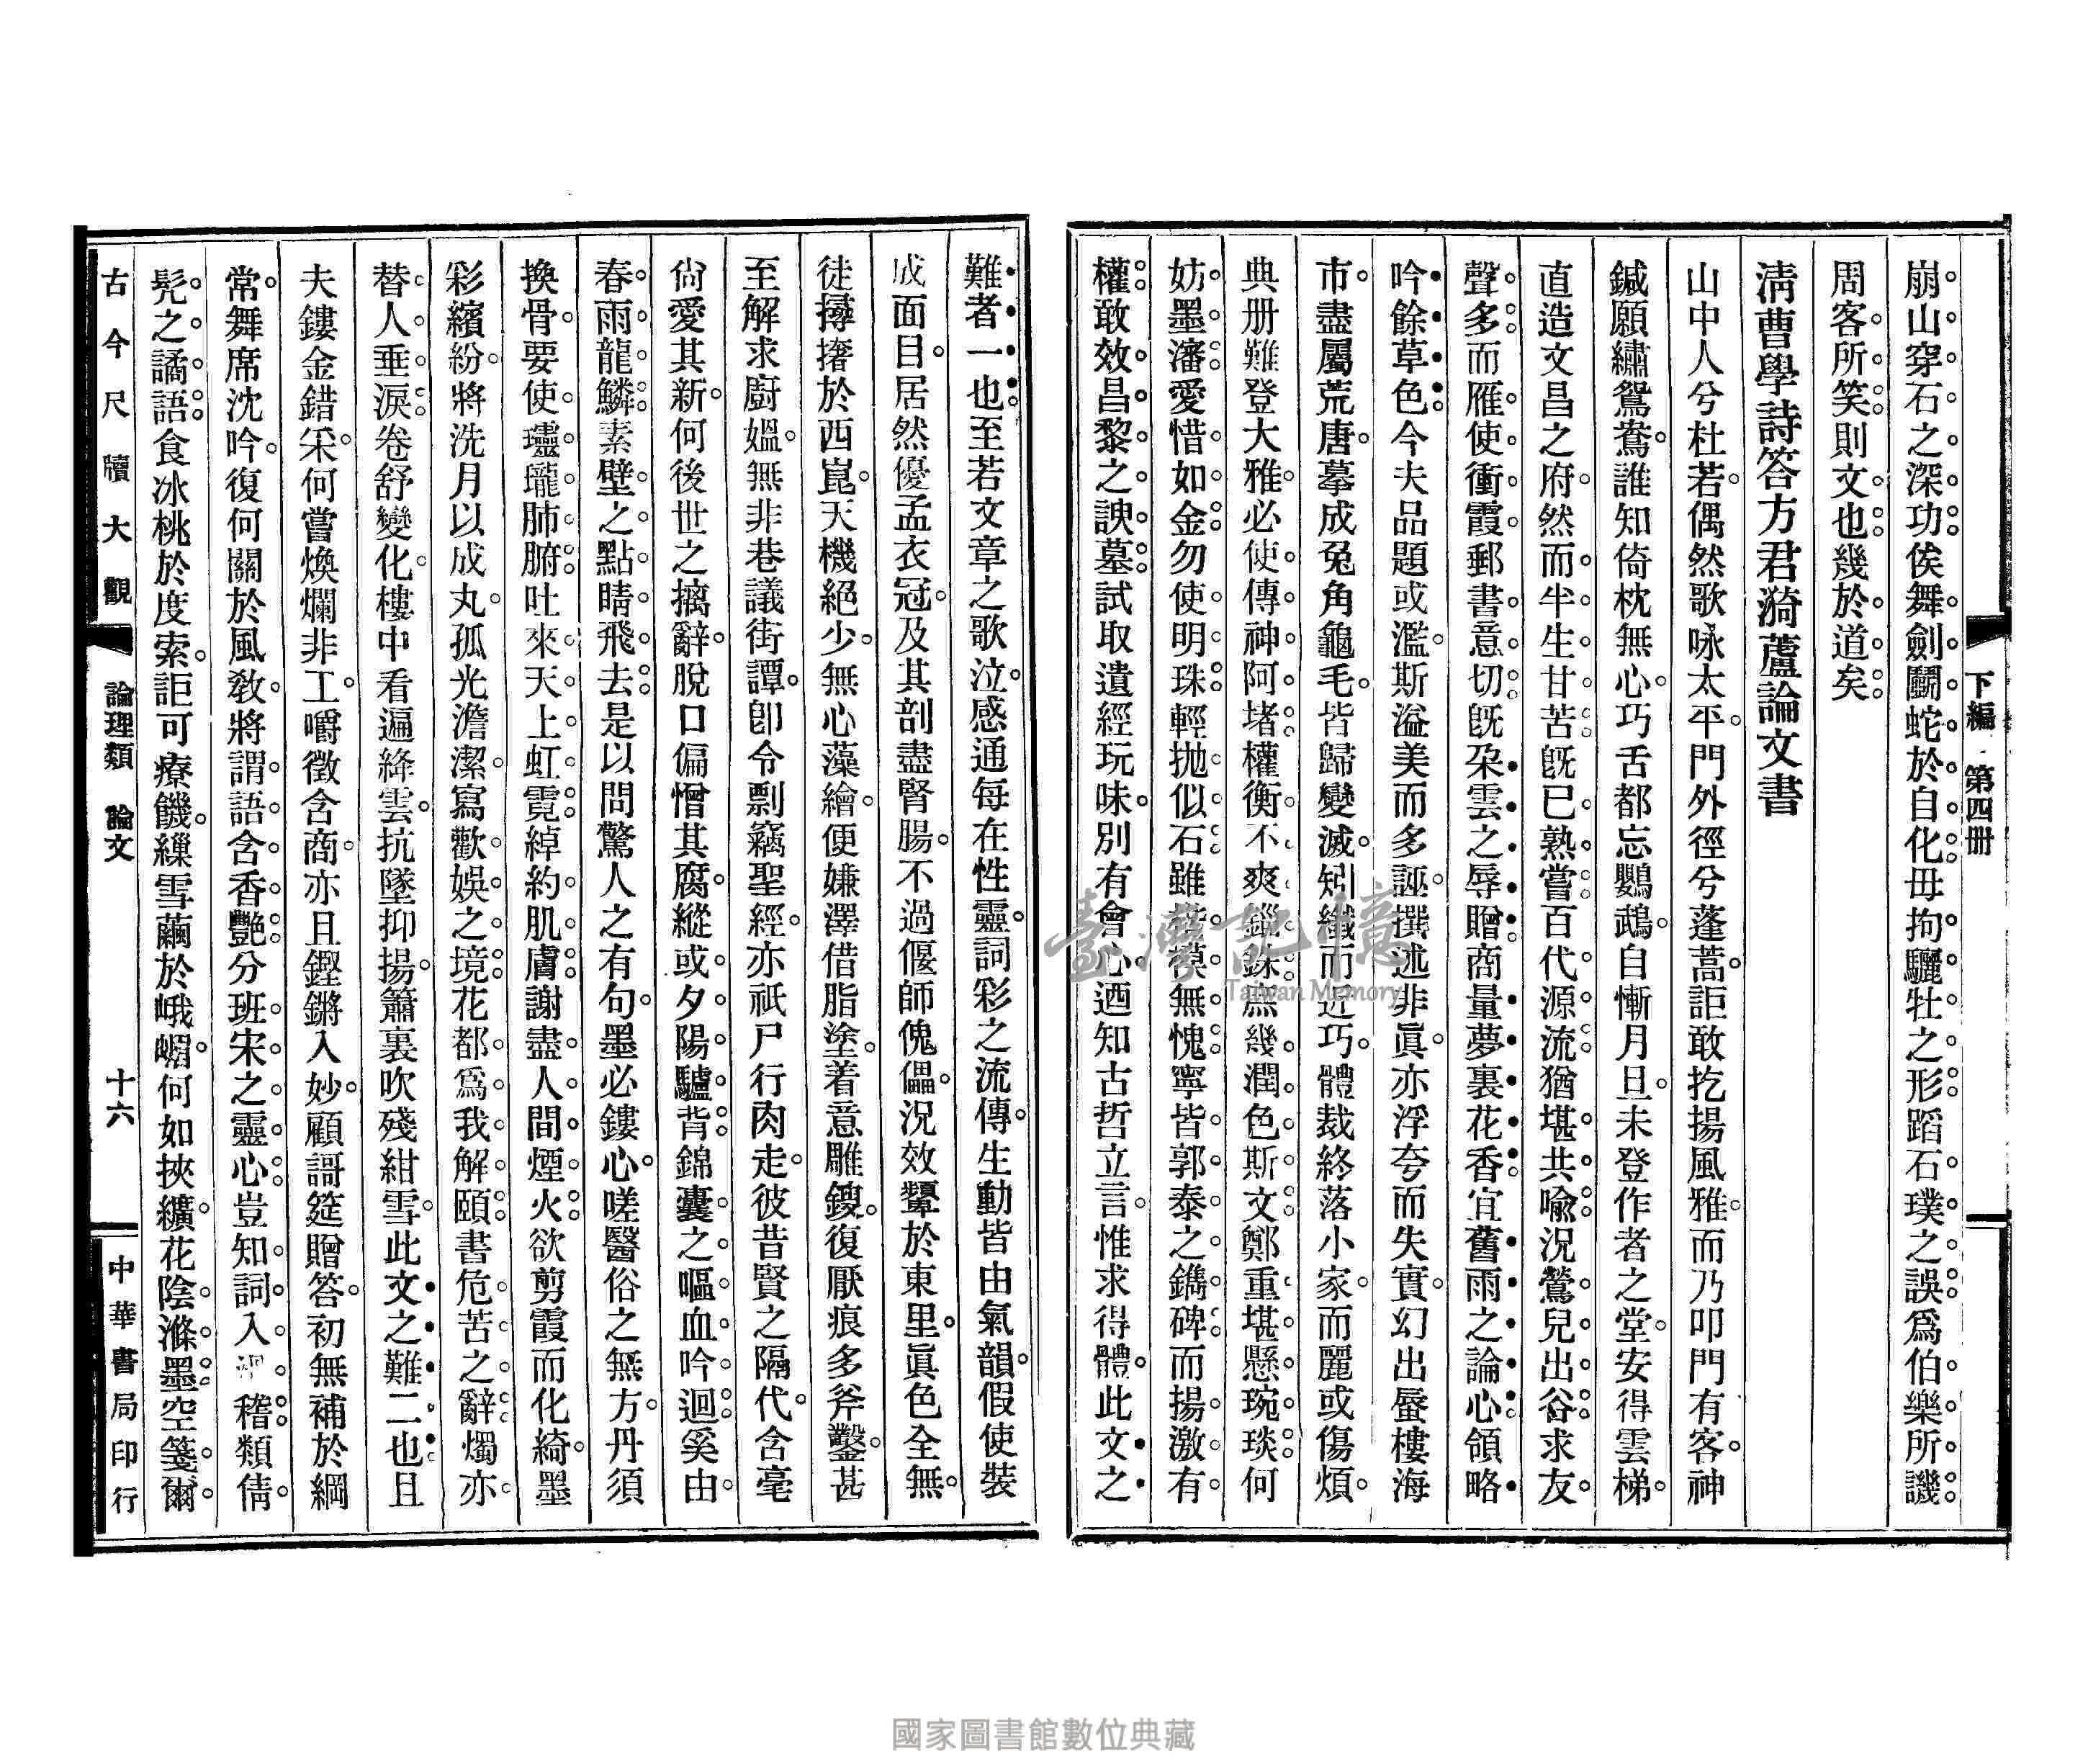 下編 第四冊
崩山穿石之深功俟舞劍鬭蛇於自化毋拘驪牡之形蹈石璞之誤爲伯樂所譏
周客所笑則文也幾於道矣
淸曹學詩答方君漪蘆論文書
山中人兮杜若偶然歌咏太平門外徑兮蓬蒿詎敢扢揚風雅而乃叩門有客神
鍼願繡鴛鴦誰知倚枕無心巧舌都忘鸚鵡自慚月旦未登作者之堂安得雲梯
直造文昌之府然而半生甘苦旣已熟嘗百代源流猶堪共喩況鶯兒出谷求友
聲多而雁使衝霞郵書意切旣朶雲之辱贈商量夢裏花香宜舊雨之論心領略
吟餘草色今夫品題或濫斯溢美而多誣撰述非眞亦浮夸而失實幻出蜃樓海
市盡屬荒唐摹成兔角龜毛皆歸變滅矧纖而近巧體裁終落小家而麗或傷煩
典册難登大雅必使傳神阿堵權衡不爽錙銖庶幾潤色斯文鄭重堪懸琬琰何
妨墨瀋愛惜如金勿使明珠輕拋似石雖摸無愧寧皆郭泰之鐫碑而揚激有
權敢效昌黎之諛墓試取遺經玩味別有會心迺知古哲立言惟求得體此文之
難者一也至若文章之歌泣感通每在性靈詞彩之流傳生動皆由氣韻假使裝
成面目居然優孟衣冠及其剖盡腎腸不過偃師傀儡況效顰於東里眞色全無
徒撏撦於西崑天機絕少無心藻繪便嫌澤借脂塗着意雕鎪復厭痕多斧鑿甚
至解求廚媼無非巷議街譚卽令剽竊聖經亦祇尸行肉走彼昔賢之隔代含毫
尙愛其新何後世之摛辭脫口偏憎其腐縱或夕陽驢背錦囊之嘔血吟迴奚由
春雨龍鱗素壁之點睛飛去是以問驚人之有句墨必鏤心嗟醫俗之無方丹須
換骨要使瓏肺腑吐來天上虹霓綽約肌膚謝盡人間煙火欲剪霞而化綺墨
彩繽紛將洗月以成丸孤光澹潔寫歡娛之境花都爲我解頤書危苦之辭燭亦
替人垂淚卷舒變化樓中看遍絳雲抗墜抑揚簫裏吹殘紺雪此文之難二也且
夫鏤金錯采何嘗煥爛非工嚼徵含商亦且鏗鏘入妙顧謌筵贈答初無補於綱
常舞席沈吟復何關於風敎將謂語含香豔分班宋之靈心豈知詞入稽類倩
髡之譎語食冰桃於度索詎可療饑繅雪繭於峨嵋何如挾纊花陰滌墨空箋爾
古今尺牘大觀
論理類 論文
十六
中華書局印行
臺灣記憶
Taiwan Memory
國家圖書館數位典藏